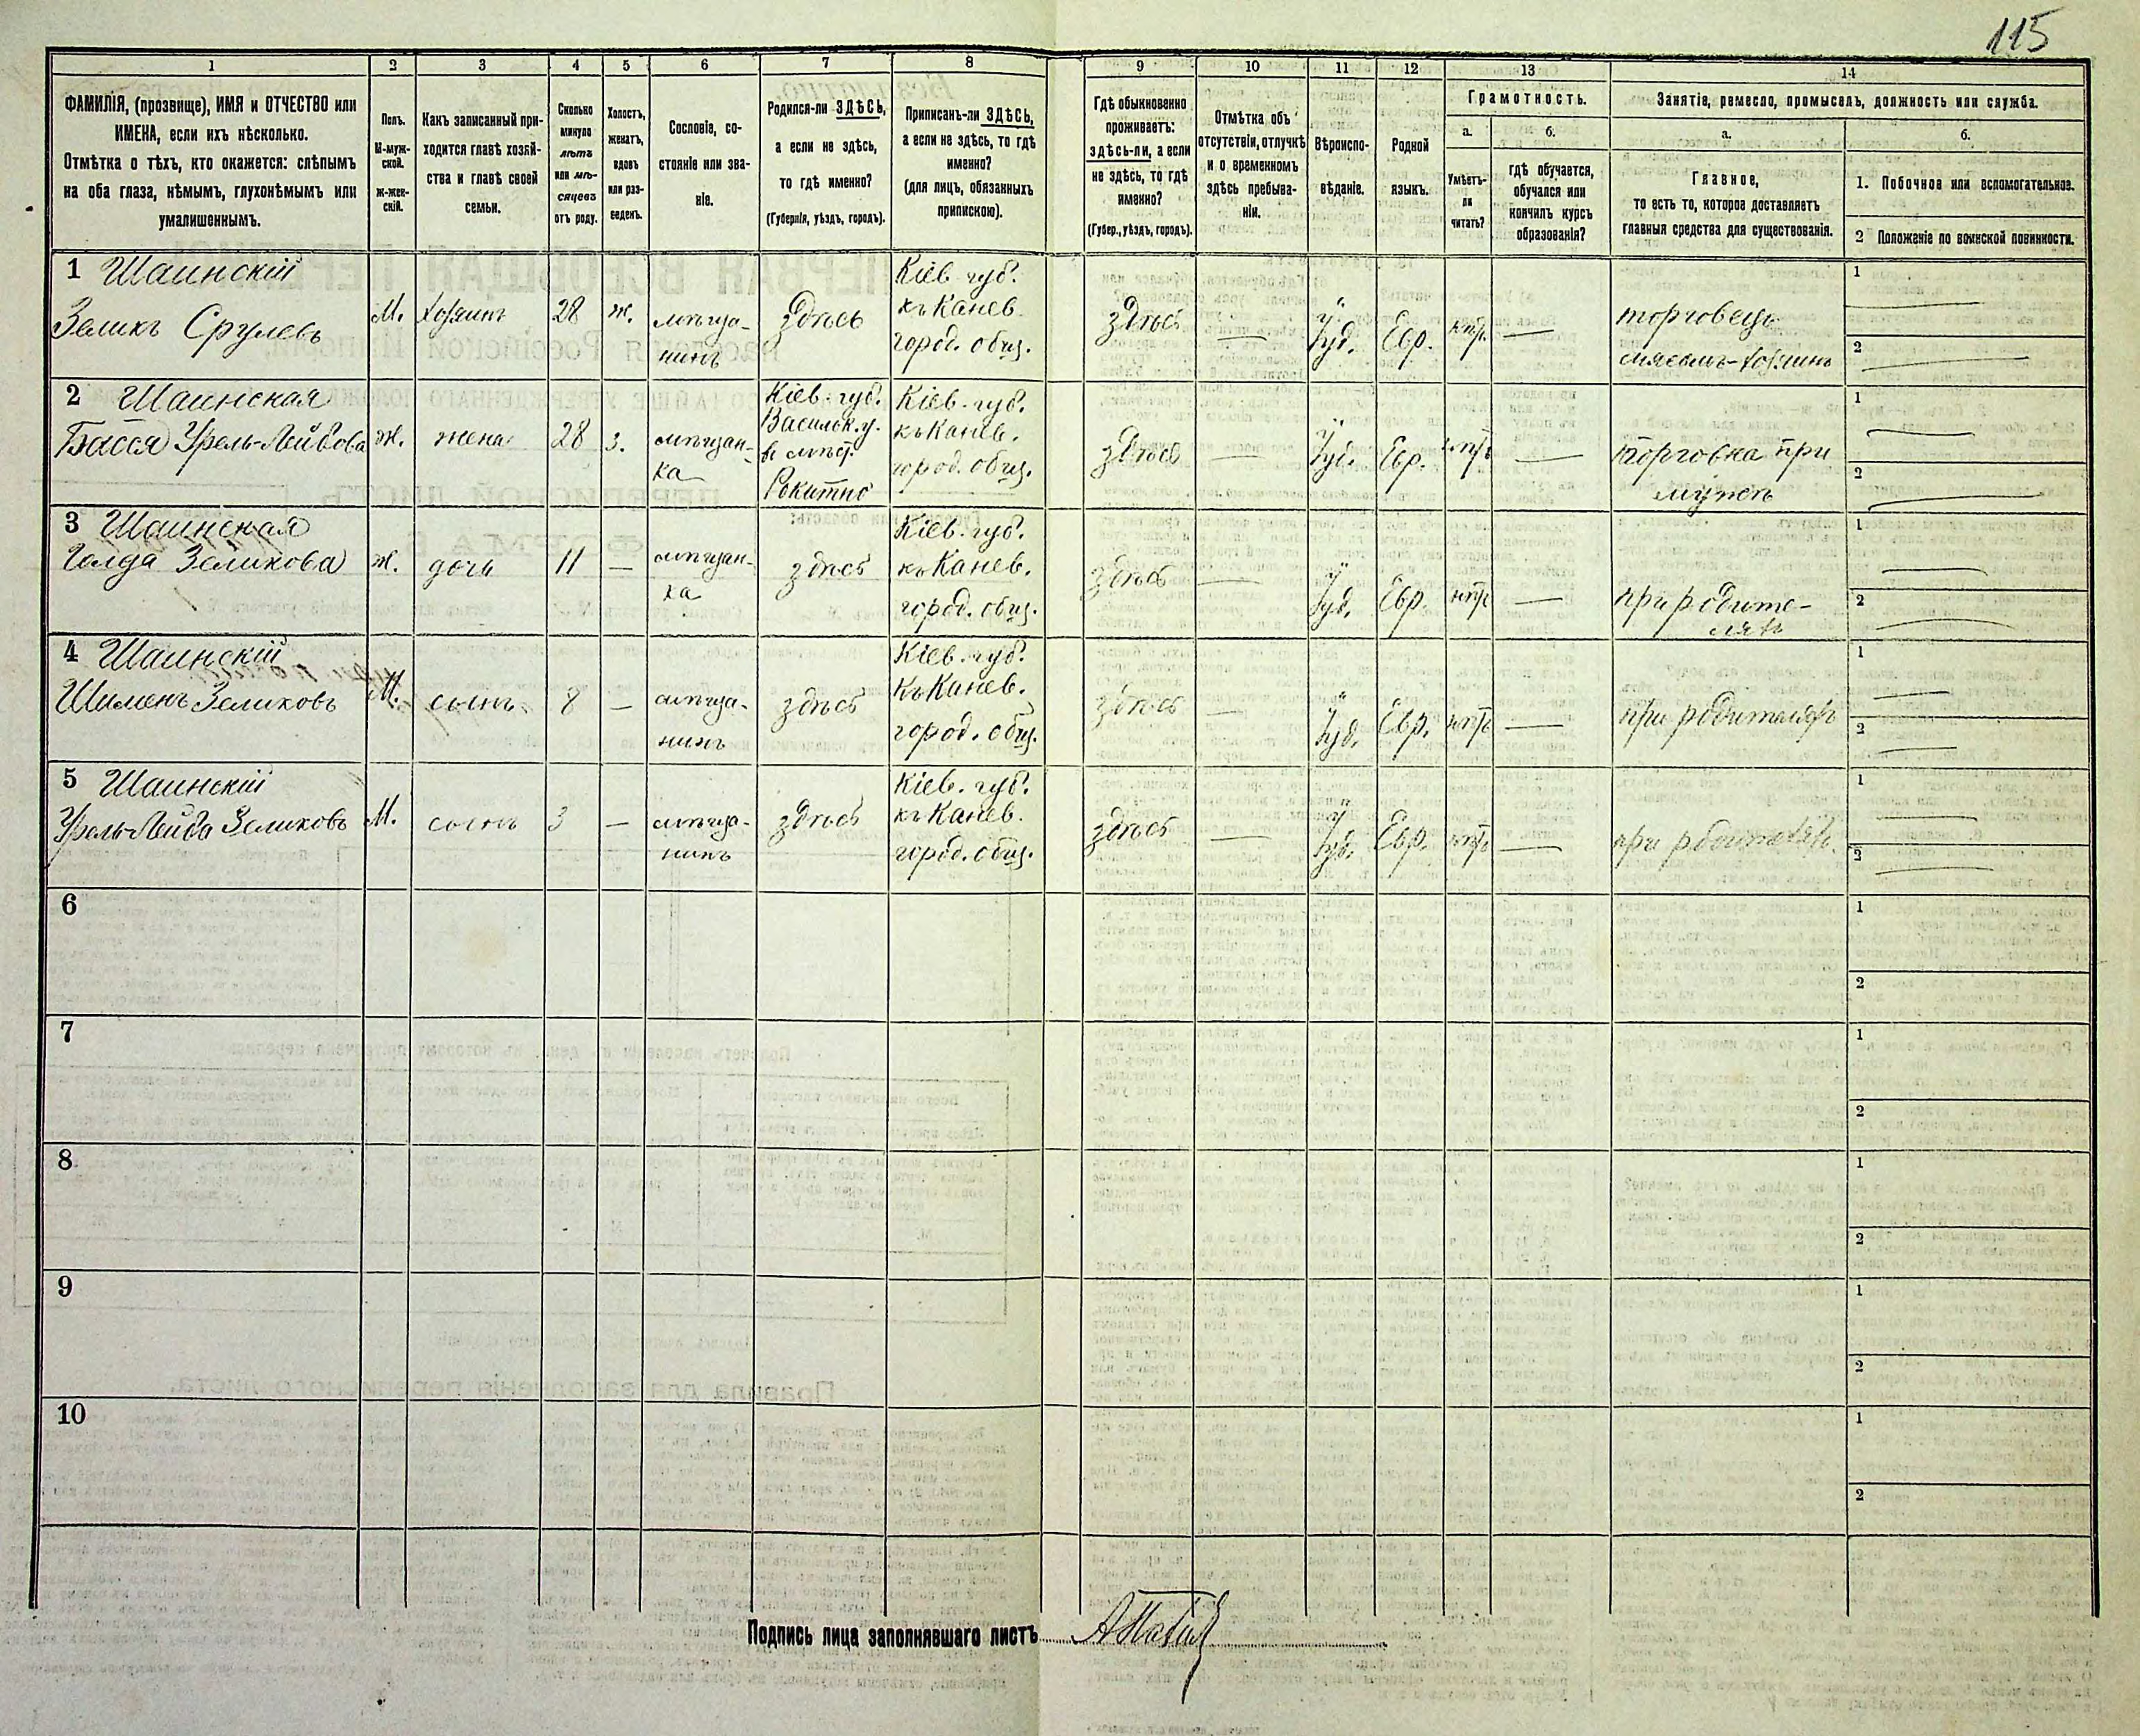 115
1 2 3 4 5 6 7 8 9 10 11 12 13 14
ФАМИЛІЯ, (прозвище), ИМЯ и ОТЧЕСТВО или
ИМЕНА, если ихъ нѣсколько.
Отмѣтка о тѣхъ, кто окажется: слѣпымъ
на оба глаза, нѣмымъ, глухонѣмымъ или
умалишеннымъ.
Полъ.
М-муж-
ской.
Ж-жен-
скій.
Какъ записанный при-
ходится главѣ хозяй-
ства и главѣ своей
семьи.
Сколько
минуло
лѣтъ
или мѣ-
сяцевъ
отъ роду.
Холостъ,
женатъ,
вдовъ
или раз-
веденъ.
Сословіе, со-
стояніе или зва-
ніе.
Родился-ли ЗДѢСЬ,
а если не здѣсь,
то гдѣ именно?
(Губернія, уѣздъ, городъ).
Приписанъ-ли ЗДѢСЬ,
а если не здѣсь, то гдѣ
именно?
(для лицъ, обязанныхъ
припискою).
Гдѣ обыкновенно
проживаетъ:
здѣсь-ли, а если
не здѣсь, то гдѣ
именно?
(Губер., уѣздъ, городъ).
Отмѣтка объ
отсутствіи, отлучкѣ
и о временномъ
здѣсь пребыва-
ніи.
Вѣроиспо-
вѣданіе.
Родной
языкъ.
Грамотность.
а.
Умѣетъ-
ли
читать?
б.
гдѣ обучается,
обучался или
кончилъ курсъ
образованія?
Занятіе, ремесло, промыселъ, должность или служба.
а.
Главное,
то есть то, которое доставляетъ
главныя средства для существованія.
б.
1. Побочное или вспомогательное.
2 Положеніе по воинской повинности.
1 Шаинскій
Зеликъ Срулевъ
М.
хозяинъ
28
ж.
мѣща-
нинъ
Здѣсь
Кіев. губ.
къ Канев.
город. общ.
здѣсь
—
Іуд.
Евр.
нѣтъ
—
торговецъ
мясомъ-хозяинъ
1 —
2 —
2 Шаинская
Бася Урель-Лейбова
ж.
жена
28
з.
мѣщан-
ка
Кіев. губ.
Васильк. у.
в мѣст.
Рокитно
Кіев. губ.
къ Канев.
город. общ.
здѣсь
—
Іуд.
Евр.
нѣтъ
—
торговка при
мужѣ
1 —
2 —
3 Шаинская
Голда Зеликова
ж.
дочь
11
—
мѣщан-
ка
здѣсь
Кіев. губ.
къ Канев.
город. общ.
здѣсь
—
Іуд.
Евр.
нѣтъ
—
при родите-
ляхъ
1 —
2 —
4 Шаинскій
Шименъ Зеликовъ
М.
сынъ
8
—
мѣща-
нинъ
здѣсь
Кіев. губ.
къ Канев.
город. общ.
здѣсь
—
Іуд.
Евр.
нѣтъ
—
при родителяхъ
1 —
2 —
5 Шаинскій
Урель-Лейба Зеликовъ
М.
сынъ
3
—
мѣща-
нинъ
здѣсь
Кіев. губ.
къ Канев.
город. общ.
здѣсь
—
Іуд.
Евр.
нѣтъ
—
при родителяхъ
1 —
2 —
6
1
2
7
1
2
8
1
2
9
1
2
10
1
2
Подпись лица заполнявшаго листъ